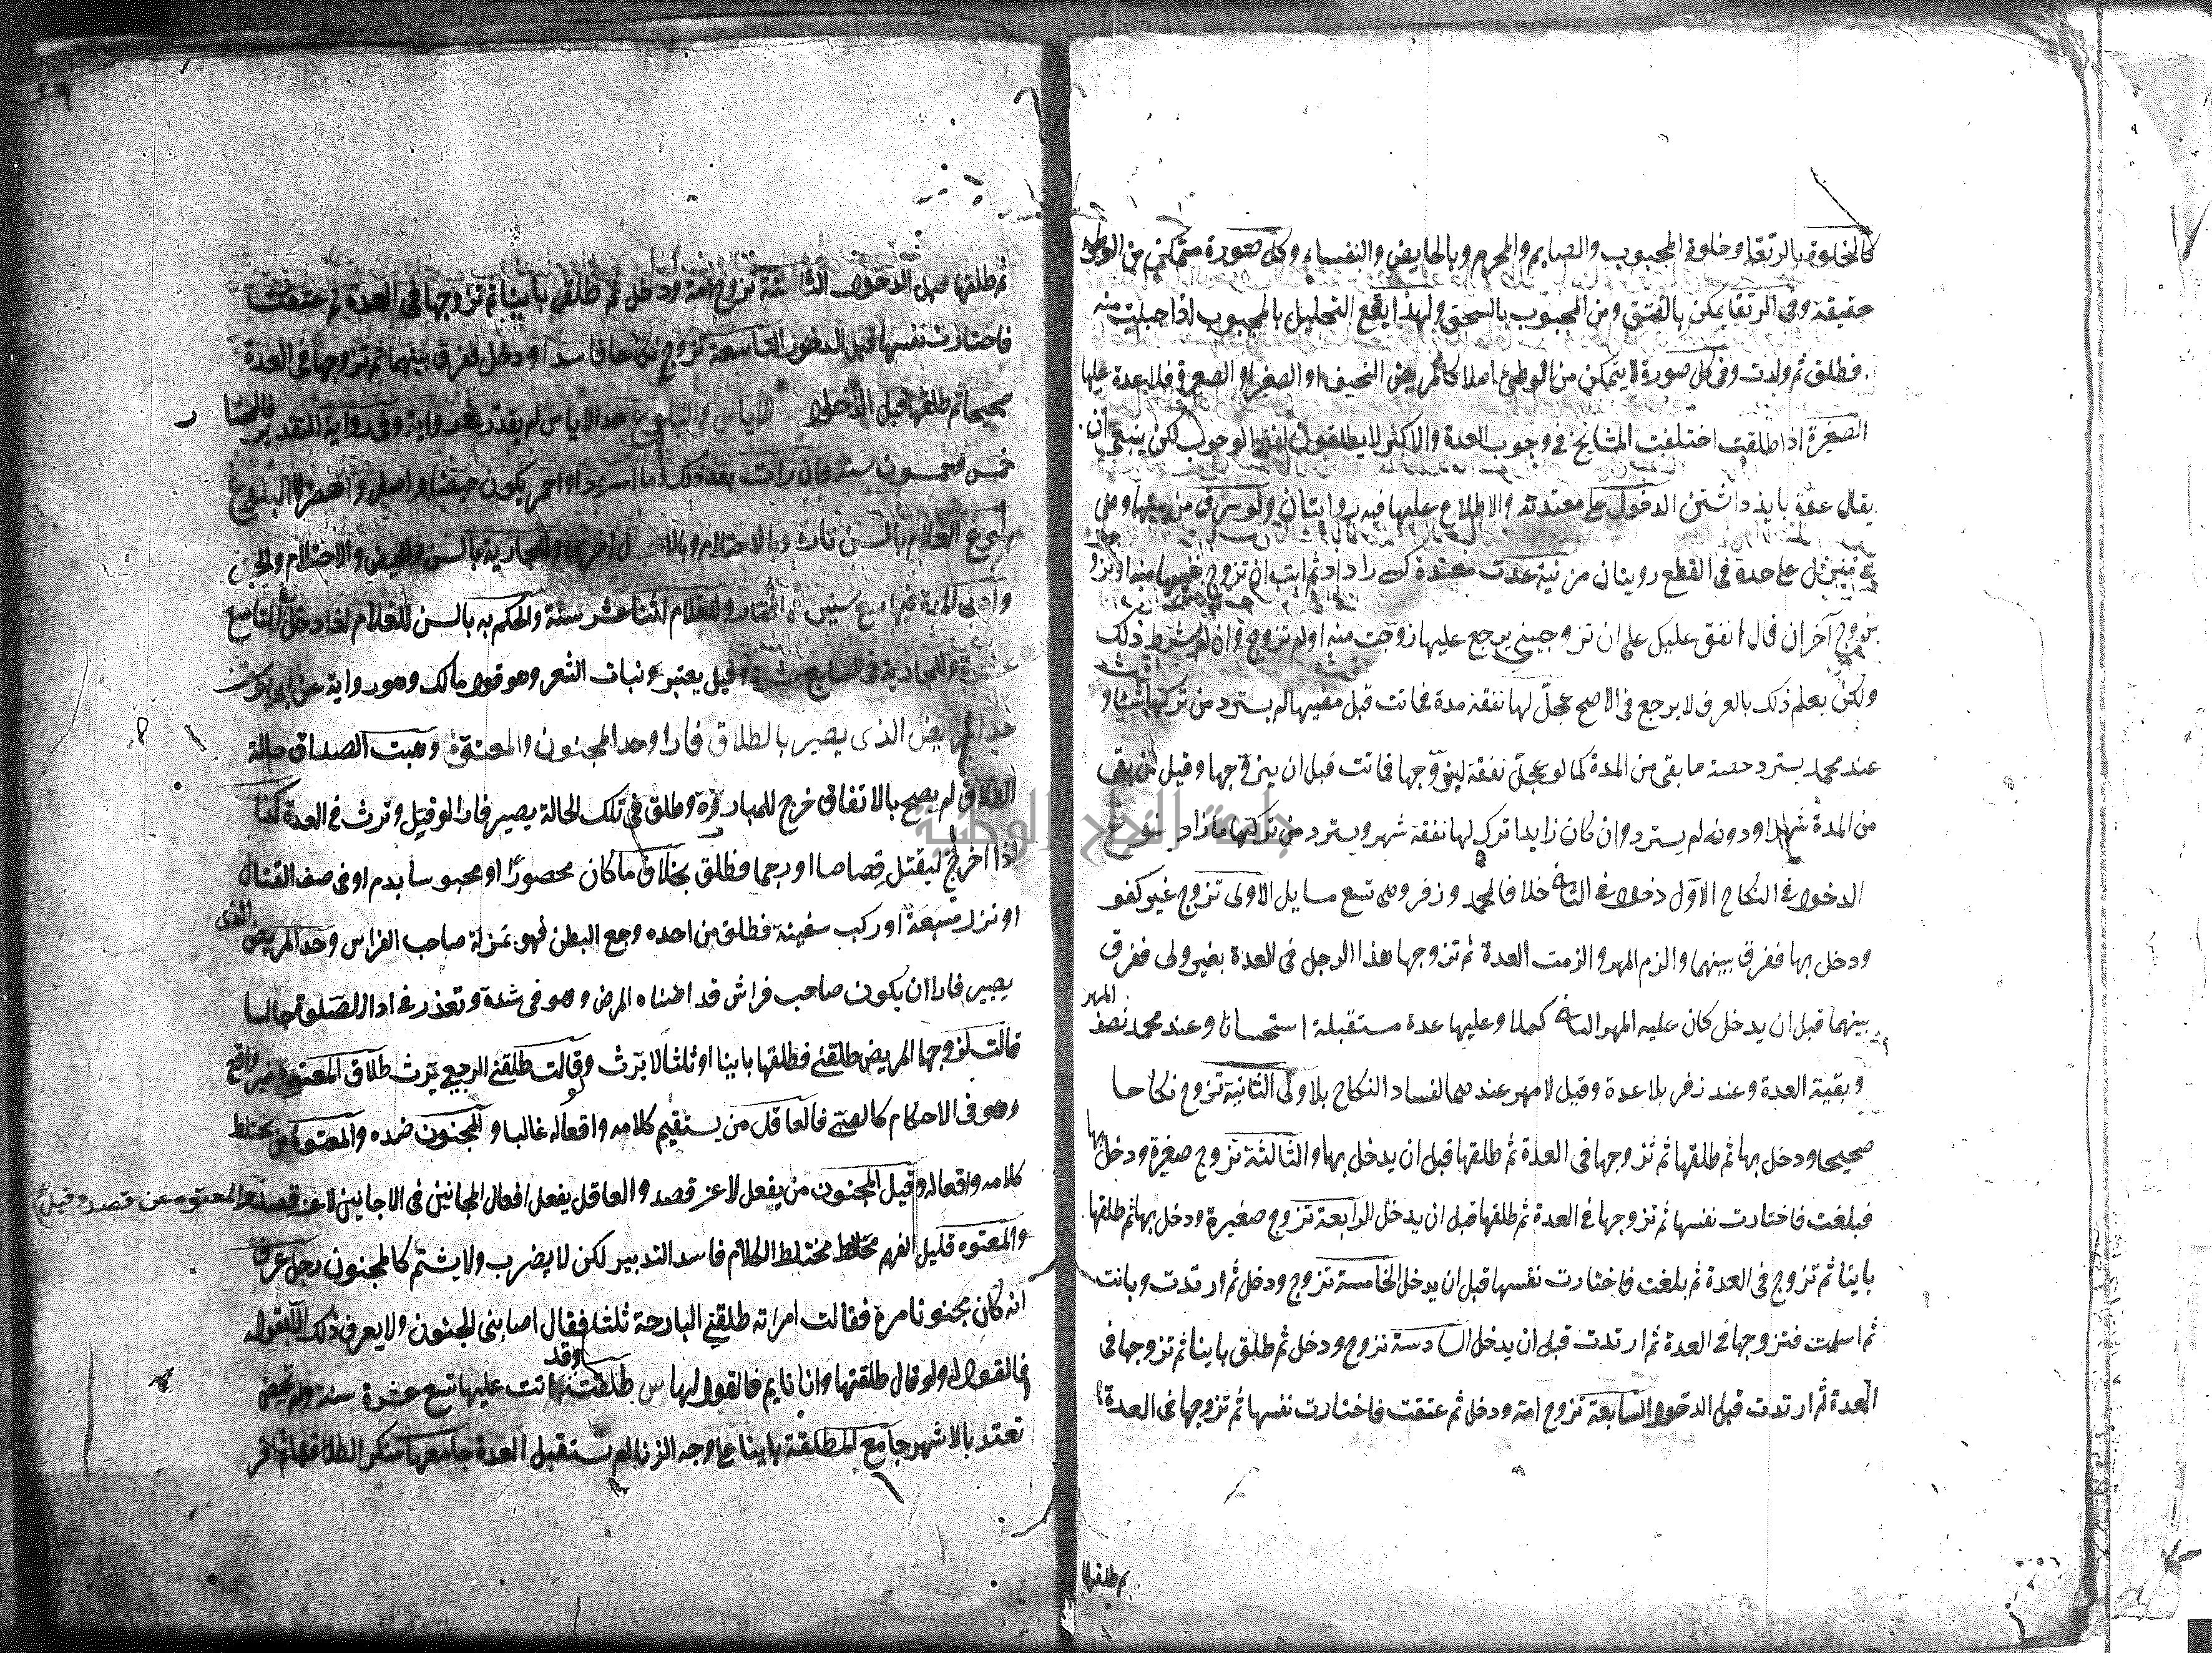 كالخلوة بالرتقا وخلوة المجبوب والصايم والمحرم وبالحايض والنفساء وكل صورة متمكن من الوطئ
حقيقة وفى الرتقا يمكن بالفتق ومن المجبوب بالسحق ولهذا يقع التحليل بالمجبوب اذا حبلت منه
فطلق ثم ولدت وفى كل صورة لا يتمكن من الوطئ اصلا كالمريض النحيف او الصغير او الصغيرة فلا عدة عليها
الصغيرة اذا طلقت اختلفت المشايخ فى وجوب العدة والاكثر لا يطلقون لفظ الوجوب لكن ينبغى ان
يقال عدة بايد داشتن الدخول على معتدته والاطلاع عليها فيه روايتان ولو سرق من بيتها وهى
فى بيت على حدة فى القطع روايتان من نية عدت معتدة كسى را داد ثم ابت ان تزوج نفسها منه او تزو
بزوج آخر ان قال انفق عليك على ان تزوجينى يرجع عليها زوجت منه او لم تزوج وان لم يشترط ذلك
ولكن يعلم ذلك بالعرف لا يرجع فى الاصح عجل لها نفقة مدة فماتت قبل مضيها لم يسترد من تركها شيئا و
عند محمد يسترد حصة ما بقى من المدة كما لو عجل نفقة ليتزوجها فماتت قبل ان يتزوجها وقيل ان بقى
من المدة شهر او دونه لم يسترد وان كان زايدا ترك لها نفقة شهر ويسترد من تركتها ما زاد نوع
الدخول فى النكاح الاول دخول فى الثانى خلافا لمحمد وزفر وهى تسع مسايل الاولى تزوج غير كفو
ودخل بها ففرق بينهما والزم المهر والزمت العدة ثم تزوجها هذا الرجل فى العدة بغير ولى ففرق
بينهما قبل ان يدخل كان عليه المهر الثانى كملا وعليها عدة مستقبلة استحسانا وعند محمد نصف المهر
وبقية العدة وعند زفر بلا عدة وقيل لا مهر عندهما لفساد النكاح بلا ولى الثانية تزوج نكاحا
صحيحا ودخل بها ثم طلقها ثم تزوجها فى العدة ثم طلقها قبل ان يدخل بها والثالثة تزوج صغيرة ودخل بها
فبلغت فاختارت نفسها ثم تزوجها فى العدة ثم طلقها قبل ان يدخل الرابعة تزوج صغيرة ودخل بها ثم طلقها
باينا ثم تزوج فى العدة ثم بلغت فاختارت نفسها قبل ان يدخل الخامسة تزوج ودخل ثم ارتدت وبانت
ثم اسلمت فتزوجها فى العدة ثم ارتدت قبل ان يدخل السادسة تزوج ودخل ثم طلق باينا ثم تزوجها فى
العدة ثم ارتدت قبل الدخول السابعة تزوج امة ودخل ثم عتقت فاختارت نفسها ثم تزوجها فى العدة
ثم طلقها
ثم طلقها قبل الدخول الثامنة تزوج امة ودخل ثم طلق باينا ثم تزوجها فى العدة ثم عتقت
فاختارت نفسها قبل الدخول التاسعة تزوج نكاحا فاسدا ودخل ففرق بينهما ثم تزوجها فى العدة
صحيحا ثم طلقها قبل الدخول الاياس والبلوغ حد الاياس لم يقدر فى رواية وفى رواية التقدير فالمختار
خمس وخمسون سنة فان رات بعد ذلك دما اسود او احمر يكون حيضا واصفر واخضر لا البلوغ
بلوغ الغلام بالسن تارة وبالاحتلام وبالاحبال اخرى وللجارية بالسن والحيض والاحتلام والحبل
وادنى المدة لها تسع سنين فى المختار وللغلام اثنا عشر سنة والحكم به بالسن للغلام اذا دخل فى التاسع
عشرة وللجارية فى السابع عشرة وقيل يعتبر ونبات الشعر وهو قول مالك وهو رواية عن ابى يوسف
حد المريض الذى يصير بالطلاق فارا وحد المجنون والمعتوه وهبت الصداق حالة
الطلاق لم يصح بالاتفاق خرج للمبارزة وطلق فى تلك الحالة يصير فارا لو قتل وترث فى العدة كما
اذا اخرج ليقتل قصاصا او رجما فطلق بخلاف ما كان محصورا او محبوسا بدم او فى صف القتال
او نزل مسبعة او ركب سفينة فطلق من احده وجع البطن فهو بمنزلة صاحب الفراش وحد المريض الذى
يصير فارا ان يكون صاحب فراش قد اضناه المرض وهو فى شدة وتعذر فى ادا الصلوة جالسا
قالت لزوجها المريض طلقنى فطلقها باينا او ثلثا لا ترث وقالت طلقنى الرجعى ترث طلاق المعتوه غير واقع
وهو فى الاحكام كالصبى فالعاقل من يستقيم كلامه وافعاله غالبا والمجنون ضده والمعتوه من يختلط
كلامه وافعاله وقيل المجنون من يفعل لا عن قصد والعاقل يفعل افعال المجانين فى الاحايين لا عن قصد والمعتوه عن قصد وقيل
والمعتوه قليل الفهم مختلط الكلام فاسد التدبير لكن لا يضرب ولا يشتم كالمجنون رجل عرف
انه كان مجنونا مرة فقالت امراته طلقنى البارحة ثلثا فقال اصابنى الجنون ولا يعرف ذلك الا بقوله
فالقول له ولو قال طلقتها وانا نايم فالقول لها س طلقت وقد اتت عليها تسع عشرة سنة ولم تحض
تعتد بالاشهر جامع المطلقة باينا على وجه الزنا لم تستقبل العدة جامعها منكرا لطلاقها ثم اقر